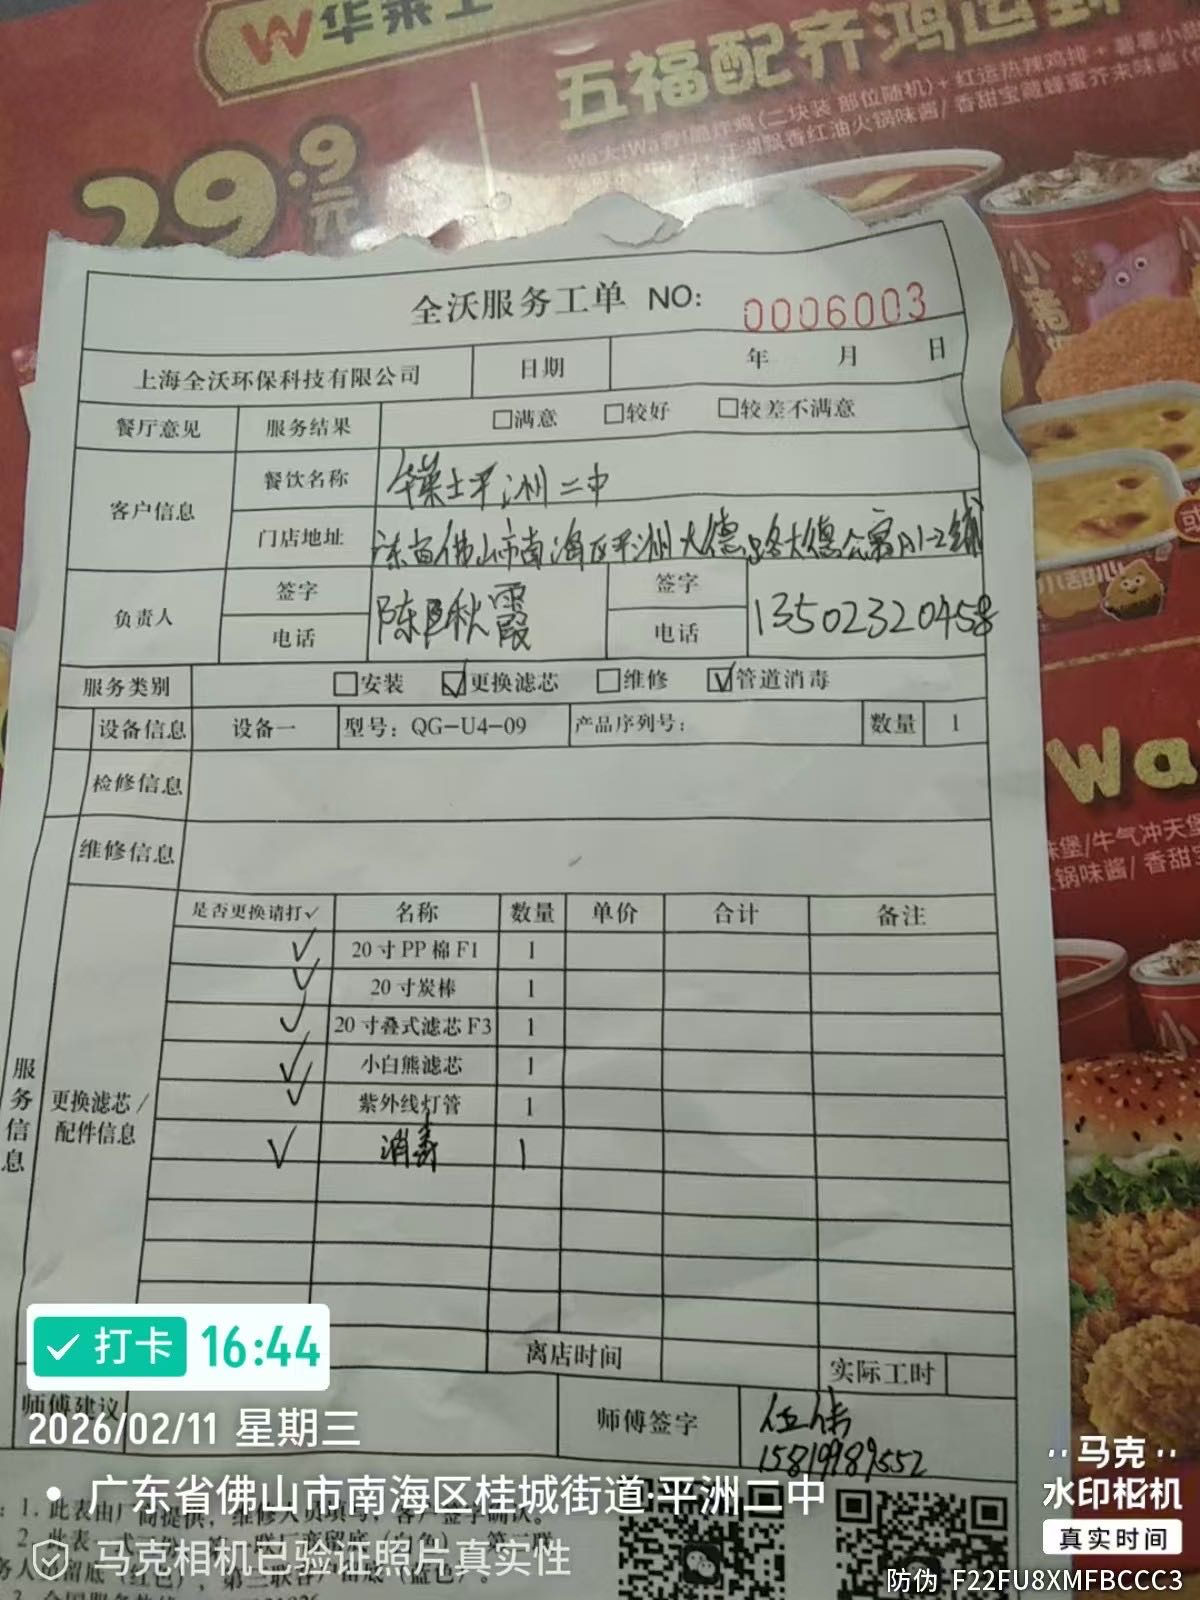 W华莱士
五福配齐鸿运到
29.9元
小猪
全沃服务工单 NO: 0006003
上海全沃环保科技有限公司 日期 年 月 日
餐厅意见 服务结果 □满意 □较好 □较差不满意
客户信息 餐饮名称 华莱士平洲二中
门店地址 东省佛山市南海区平洲大德路大德公寓A1-2铺
负责人 签字 陈秋霞 签字
电话 电话 13502320458
服务类别 □安装 ☑更换滤芯 □维修 ☑管道消毒
设备信息 设备一 型号: QG-U4-09 产品序列号: 数量 1
检修信息
维修信息
服务信息
更换滤芯/配件信息
是否更换请打✓ 名称 数量 单价 合计 备注
✓ 20寸PP棉F1 1
✓ 20寸炭棒 1
✓ 20寸叠式滤芯F3 1
✓ 小白熊滤芯 1
✓ 紫外线灯管 1
✓ 消毒 1
离店时间 实际工时
师傅建议 师傅签字
15819989552
小甜心
Wa
打卡 16:44
2026/02/11 星期三
广东省佛山市南海区桂城街道·平洲二中
马克相机已验证照片真实性
马克
水印相机
真实时间
防伪 F22FU8XMFBCCC3